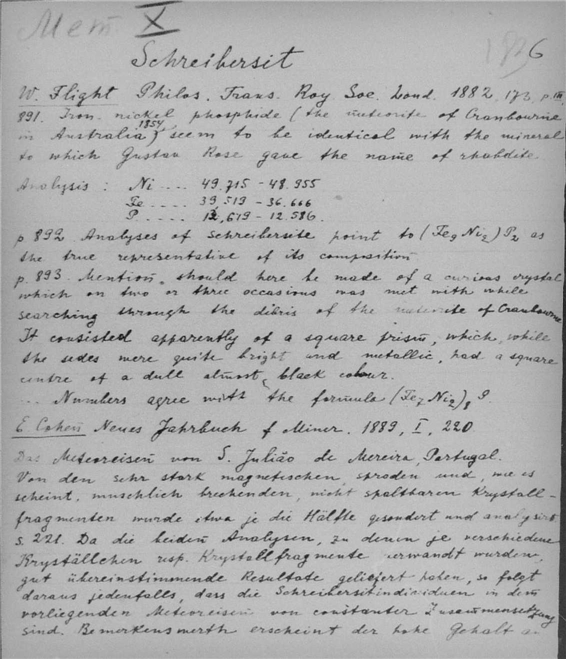 Mem X
1826
Schreibersit
W. Flight Philos. Trans. Roy Soc. Lond. 1882, 173, p. III
891. Iron nickel phosphide (the meteorite of Cranbourne
in Australia 1854) seem to be identical with the mineral
to which Gustav Rose gave the name of rhabdite.
Analysis : Ni .... 49.715 - 48.955
Fe .... 39.519 - 36.666
P .... 12.619 - 12.586.
p 892. Analyses of Schreibersite point to (Fe9 Ni2) P2 as
the true representative of its composition
p. 893. Mention should here be made of a curious crystal
which on two or three occasions was met with while
searching through the debris of the meteorite of Cranbourne
It consisted apparently of a square prism, which, while
the sides were quite bright and metallic, had a square
centre of a dull almost black colour.
... Numbers agree with the formula (Fe7 Ni2)8 P.
E Cohen Neues Jahrbuch f Miner. 1889, I, 220
Das Meteoreisen von S. Julião de Moreira, Portugal.
Von den sehr stark magnetischen, spröden und, wie es
scheint, muschlich brechenden, nicht spaltbaren Krystall-
fragmenten wurde etwa je die Hälfte gesondert und analysirt
S. 221. Da die beiden Analysen, zu denen je verschiedene
Kryställchen resp. Krystallfragmente verwandt wurden,
gut übereinstimmende Resultate geliefert haben, so folgt
daraus jedenfalls, dass die Schreibersitindividuen in dem
vorliegenden Meteoreisen von constanter Zusammensetzung
sind. Bemerkenswerth erscheint der hohe Gehalt an